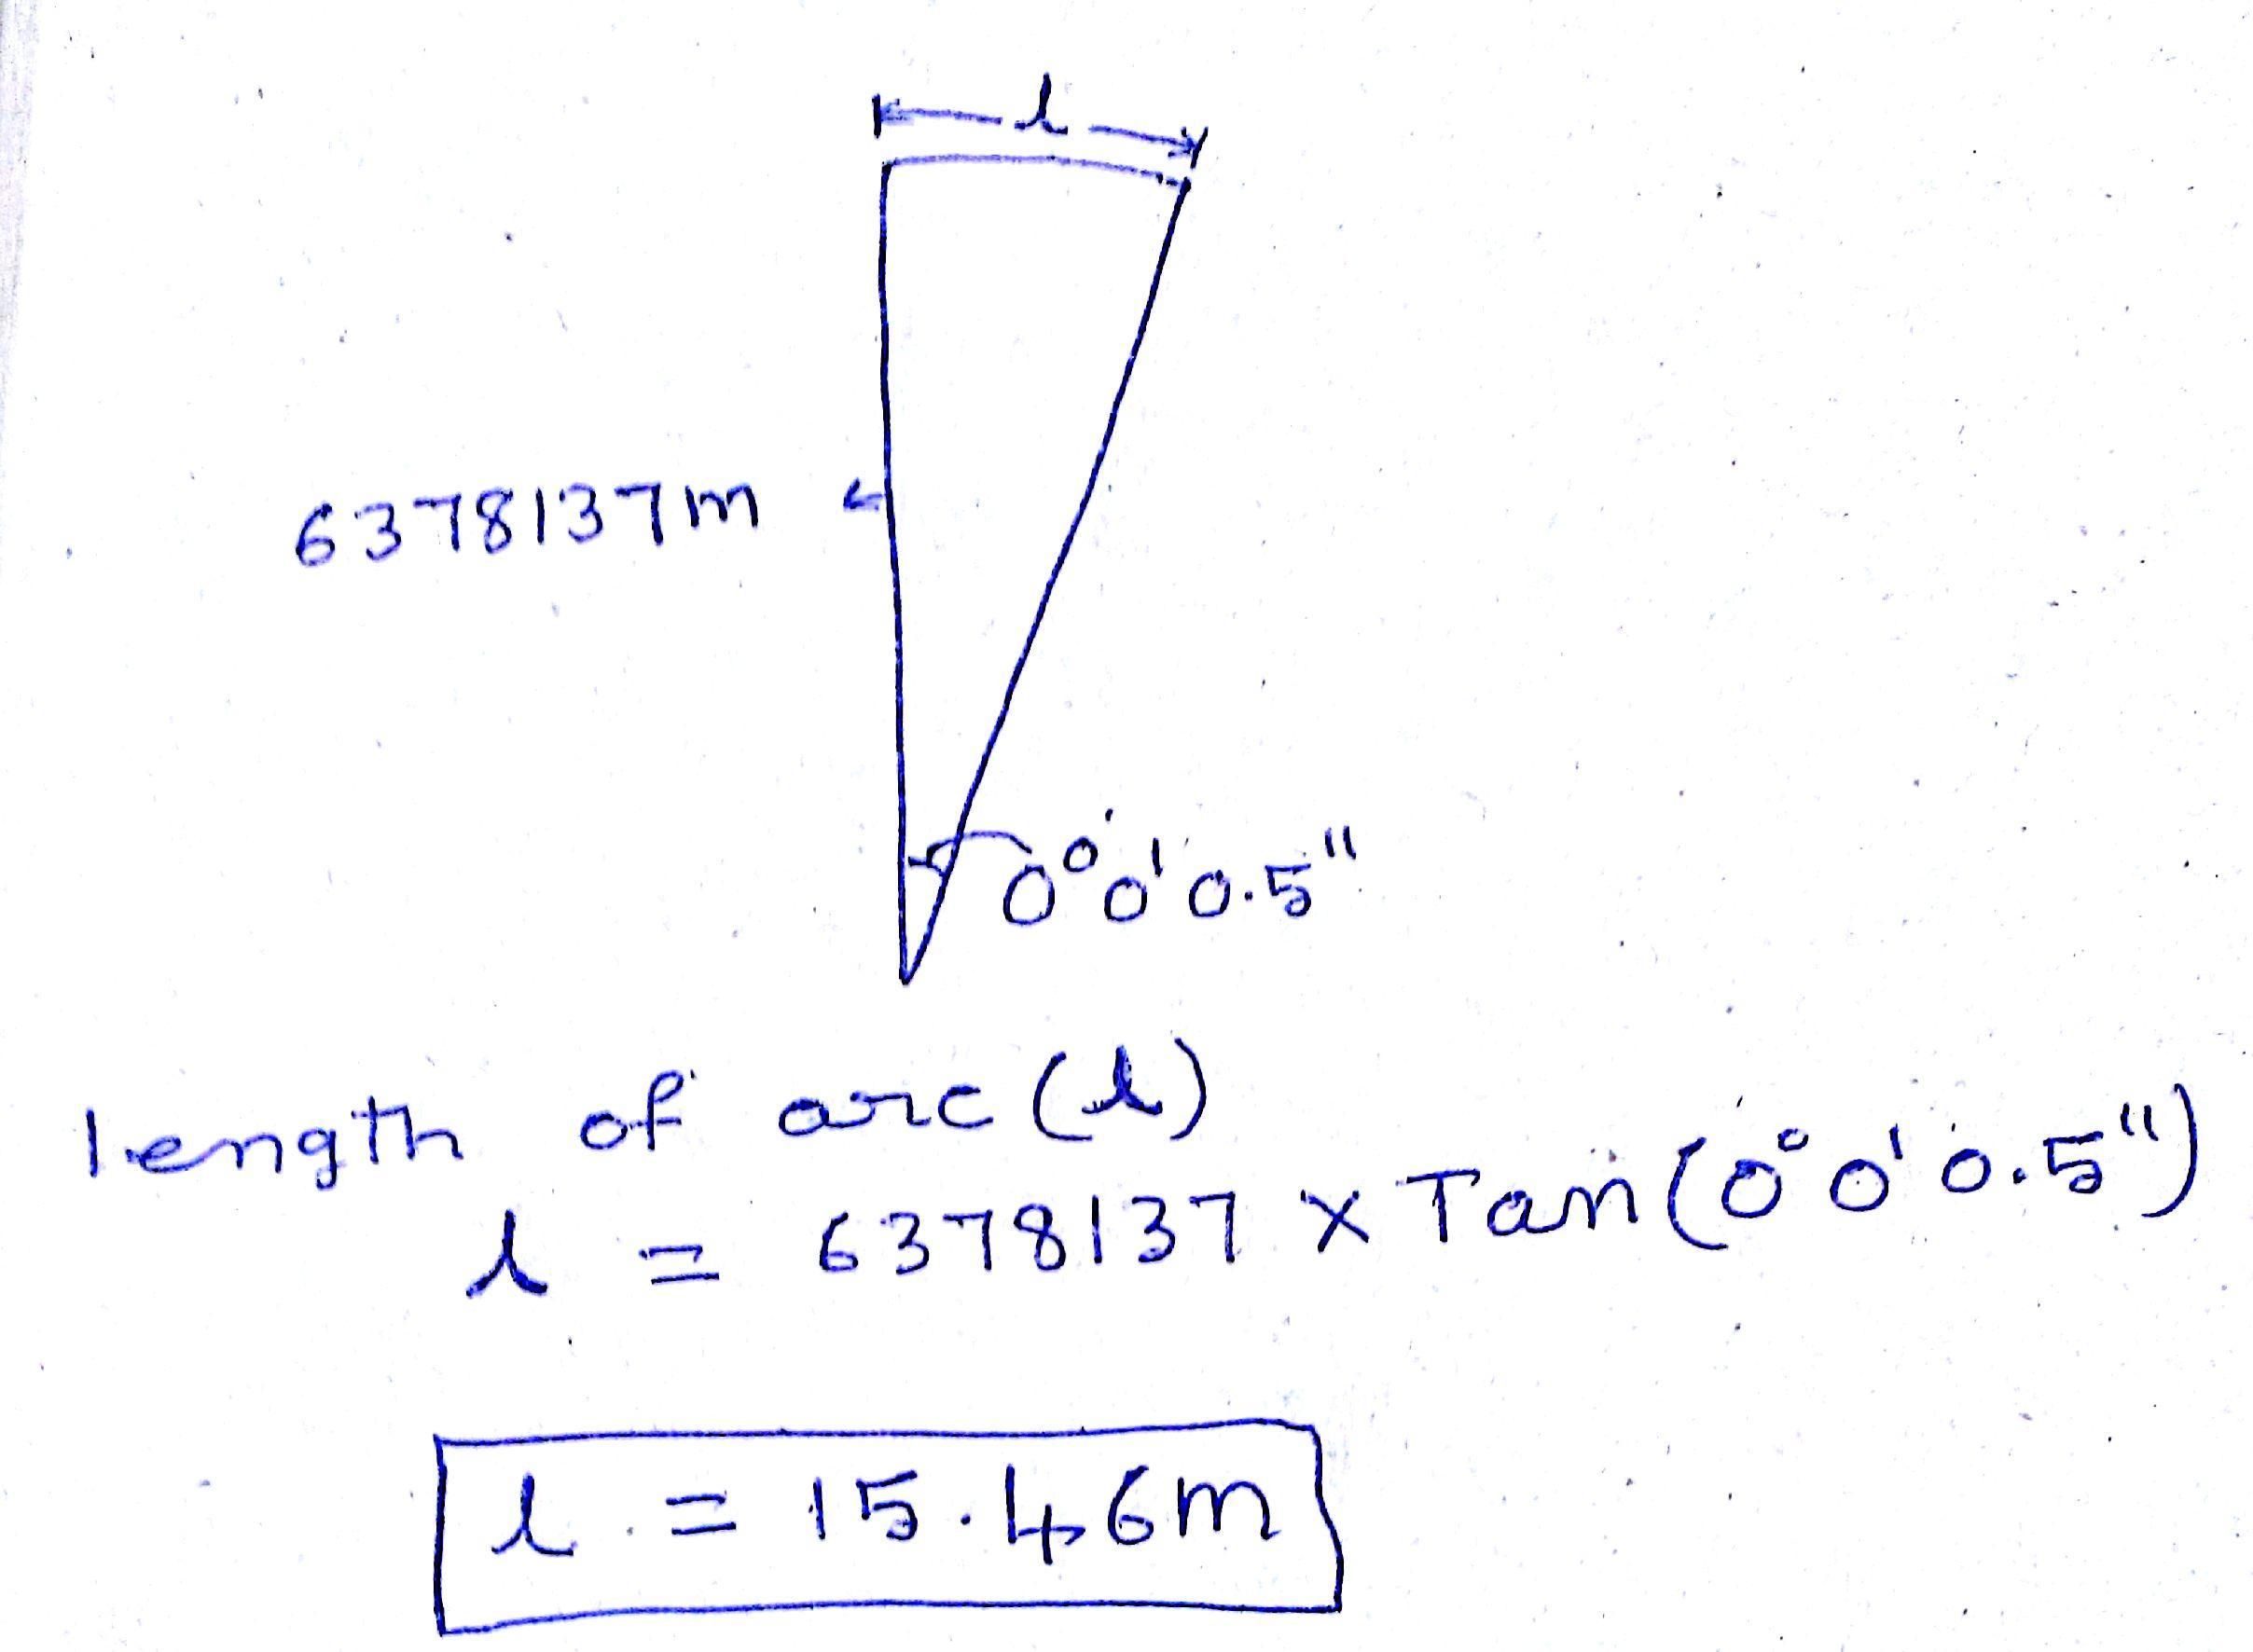 l
6378137m
0°0'0.5"
length of arc (l)
l = 6378137 × Tan(0°0'0.5")
l = 15.46m